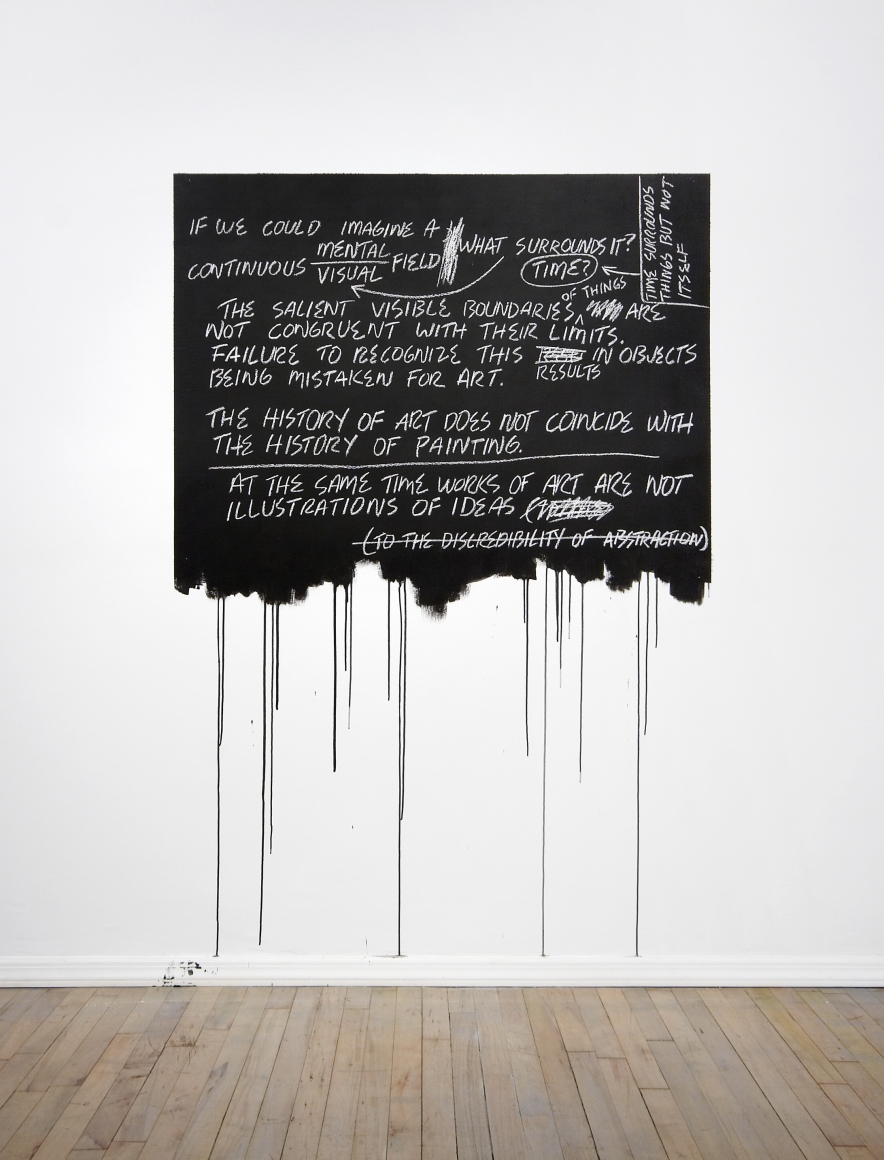 IF WE COULD IMAGINE A
CONTINUOUS MENTAL
VISUAL FIELD
WHAT SURROUNDS IT?
TIME?
TIME SURROUNDS
THINGS BUT NOT
ITSELF
OF THINGS
THE SALIENT VISIBLE BOUNDARIES ARE
NOT CONGRUENT WITH THEIR LIMITS.
FAILURE TO RECOGNIZE THIS IN OBJECTS
RESULTS
BEING MISTAKEN FOR ART.
THE HISTORY OF ART DOES NOT COINCIDE WITH
THE HISTORY OF PAINTING.
AT THE SAME TIME WORKS OF ART ARE NOT
ILLUSTRATIONS OF IDEAS
(TO THE DISCREDIBILITY OF ABSTRACTION)